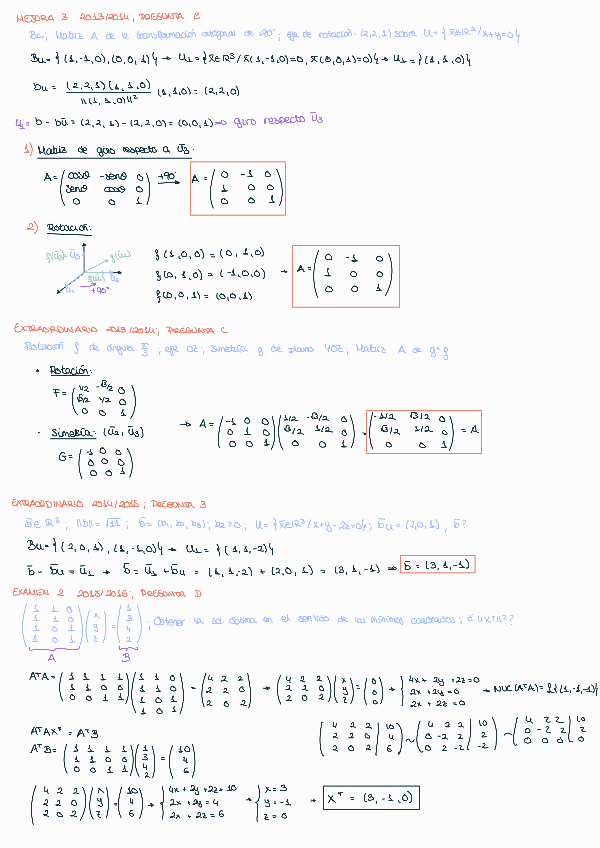 MEJORA 3 2013/2014, PREGUNTA C
Bc; Matriz A de la transformación ortogonal de +90°; eje de rotación: (2,2,1) sobre U={x̄∈ℝ³/x+y=0}
Bu={(1,-1,0),(0,0,1)} → U⊥={x̄∈ℝ³/x̄(1,-1,0)=0, x̄(0,0,1)=0} → U⊥={(1,1,0)}
bu = (2,2,1)(1,1,0) / ||(1,1,0)||² (1,1,0) = (2,2,0)
b - b̄u = (2,2,1) - (2,2,0) = (0,0,1) → giro respecto ū3
1) Matriz de giro respecto a ū3.
A = (cosθ -senθ 0 / senθ cosθ 0 / 0 0 1) +90° → A = (0 -1 0 / 1 0 0 / 0 0 1)
2) Rotación:
f(ū3)=ū3 f(ū2) f(ū1) ū2 ū1 +90°
f(1,0,0) = (0,1,0)
f(0,1,0) = (-1,0,0) → A = (0 -1 0 / 1 0 0 / 0 0 1)
f(0,0,1) = (0,0,1)
EXTRAORDINARIO 2013/2014; PREGUNTA C
Rotación f de ángulo π/3; eje OZ; Simetría g de plano YOZ; Matriz A de g∘f
• Rotación:
F = (1/2 -√3/2 0 / √3/2 1/2 0 / 0 0 1)
→ A = (-1 0 0 / 0 1 0 / 0 0 1)(1/2 -√3/2 0 / √3/2 1/2 0 / 0 0 1) = (-1/2 √3/2 0 / √3/2 1/2 0 / 0 0 1) = A
• Simetría: (ū2, ū3)
G = (1 0 0 / 0 0 0 / 0 0 1)
EXTRAORDINARIO 2014/2015; PREGUNTA 3
b̄∈ℝ³, ||b|| = √11; b̄=(b1,b2,b3); b2>0; U={x̄∈ℝ³/x+y-2z=0}; b̄u=(2,0,1), b̄?
Bu={(2,0,1),(1,-1,0)} → U⊥={(1,1,-2)}
b̄ - b̄u = ū⊥ → b̄ = ū⊥ + b̄u = (1,1,-2) + (2,0,1) = (3,1,-1) ⇒ b̄ = (3,1,-1)
EXAMEN 2 2015/2016, PREGUNTA D
(1 1 0 / 1 1 0 / 1 0 1 / 1 0 1)(x / y / z) = (1 / 3 / 4 / 2); Obtener la sol óptima en el sentido de los mínimos cuadrados; d ||x*||²?
A B
AᵀA = (1 1 1 1 / 1 1 0 0 / 0 0 1 1)(1 1 0 / 1 1 0 / 1 0 1 / 1 0 1) = (4 2 2 / 2 2 0 / 2 0 2) → (4 2 2 / 2 2 0 / 2 0 2)(x / y / z) = (0 / 0 / 0) → {4x + 2y + 2z = 0 / 2x + 2y = 0 / 2x + 2z = 0 → NUC(AᵀA) = {(1,-1,-1)}
AᵀAX* = AᵀB
AᵀB = (1 1 1 1 / 1 1 0 0 / 0 0 1 1)(1 / 3 / 4 / 2) = (10 / 4 / 6)
(4 2 2 | 10 / 2 2 0 | 4 / 2 0 2 | 6) ~ (4 2 2 | 10 / 0 -2 2 | 2 / 0 2 -2 | -2) ~ (4 2 2 | 10 / 0 -2 2 | 2 / 0 0 0 | 0)
(4 2 2 / 2 2 0 / 2 0 2)(x / y / z) = (10 / 4 / 6) → {4x + 2y + 2z = 10 / 2x + 2y = 4 / 2x + 2z = 6 → {x = 3 / y = -1 / z = 0 → X* = (3,-1,0)